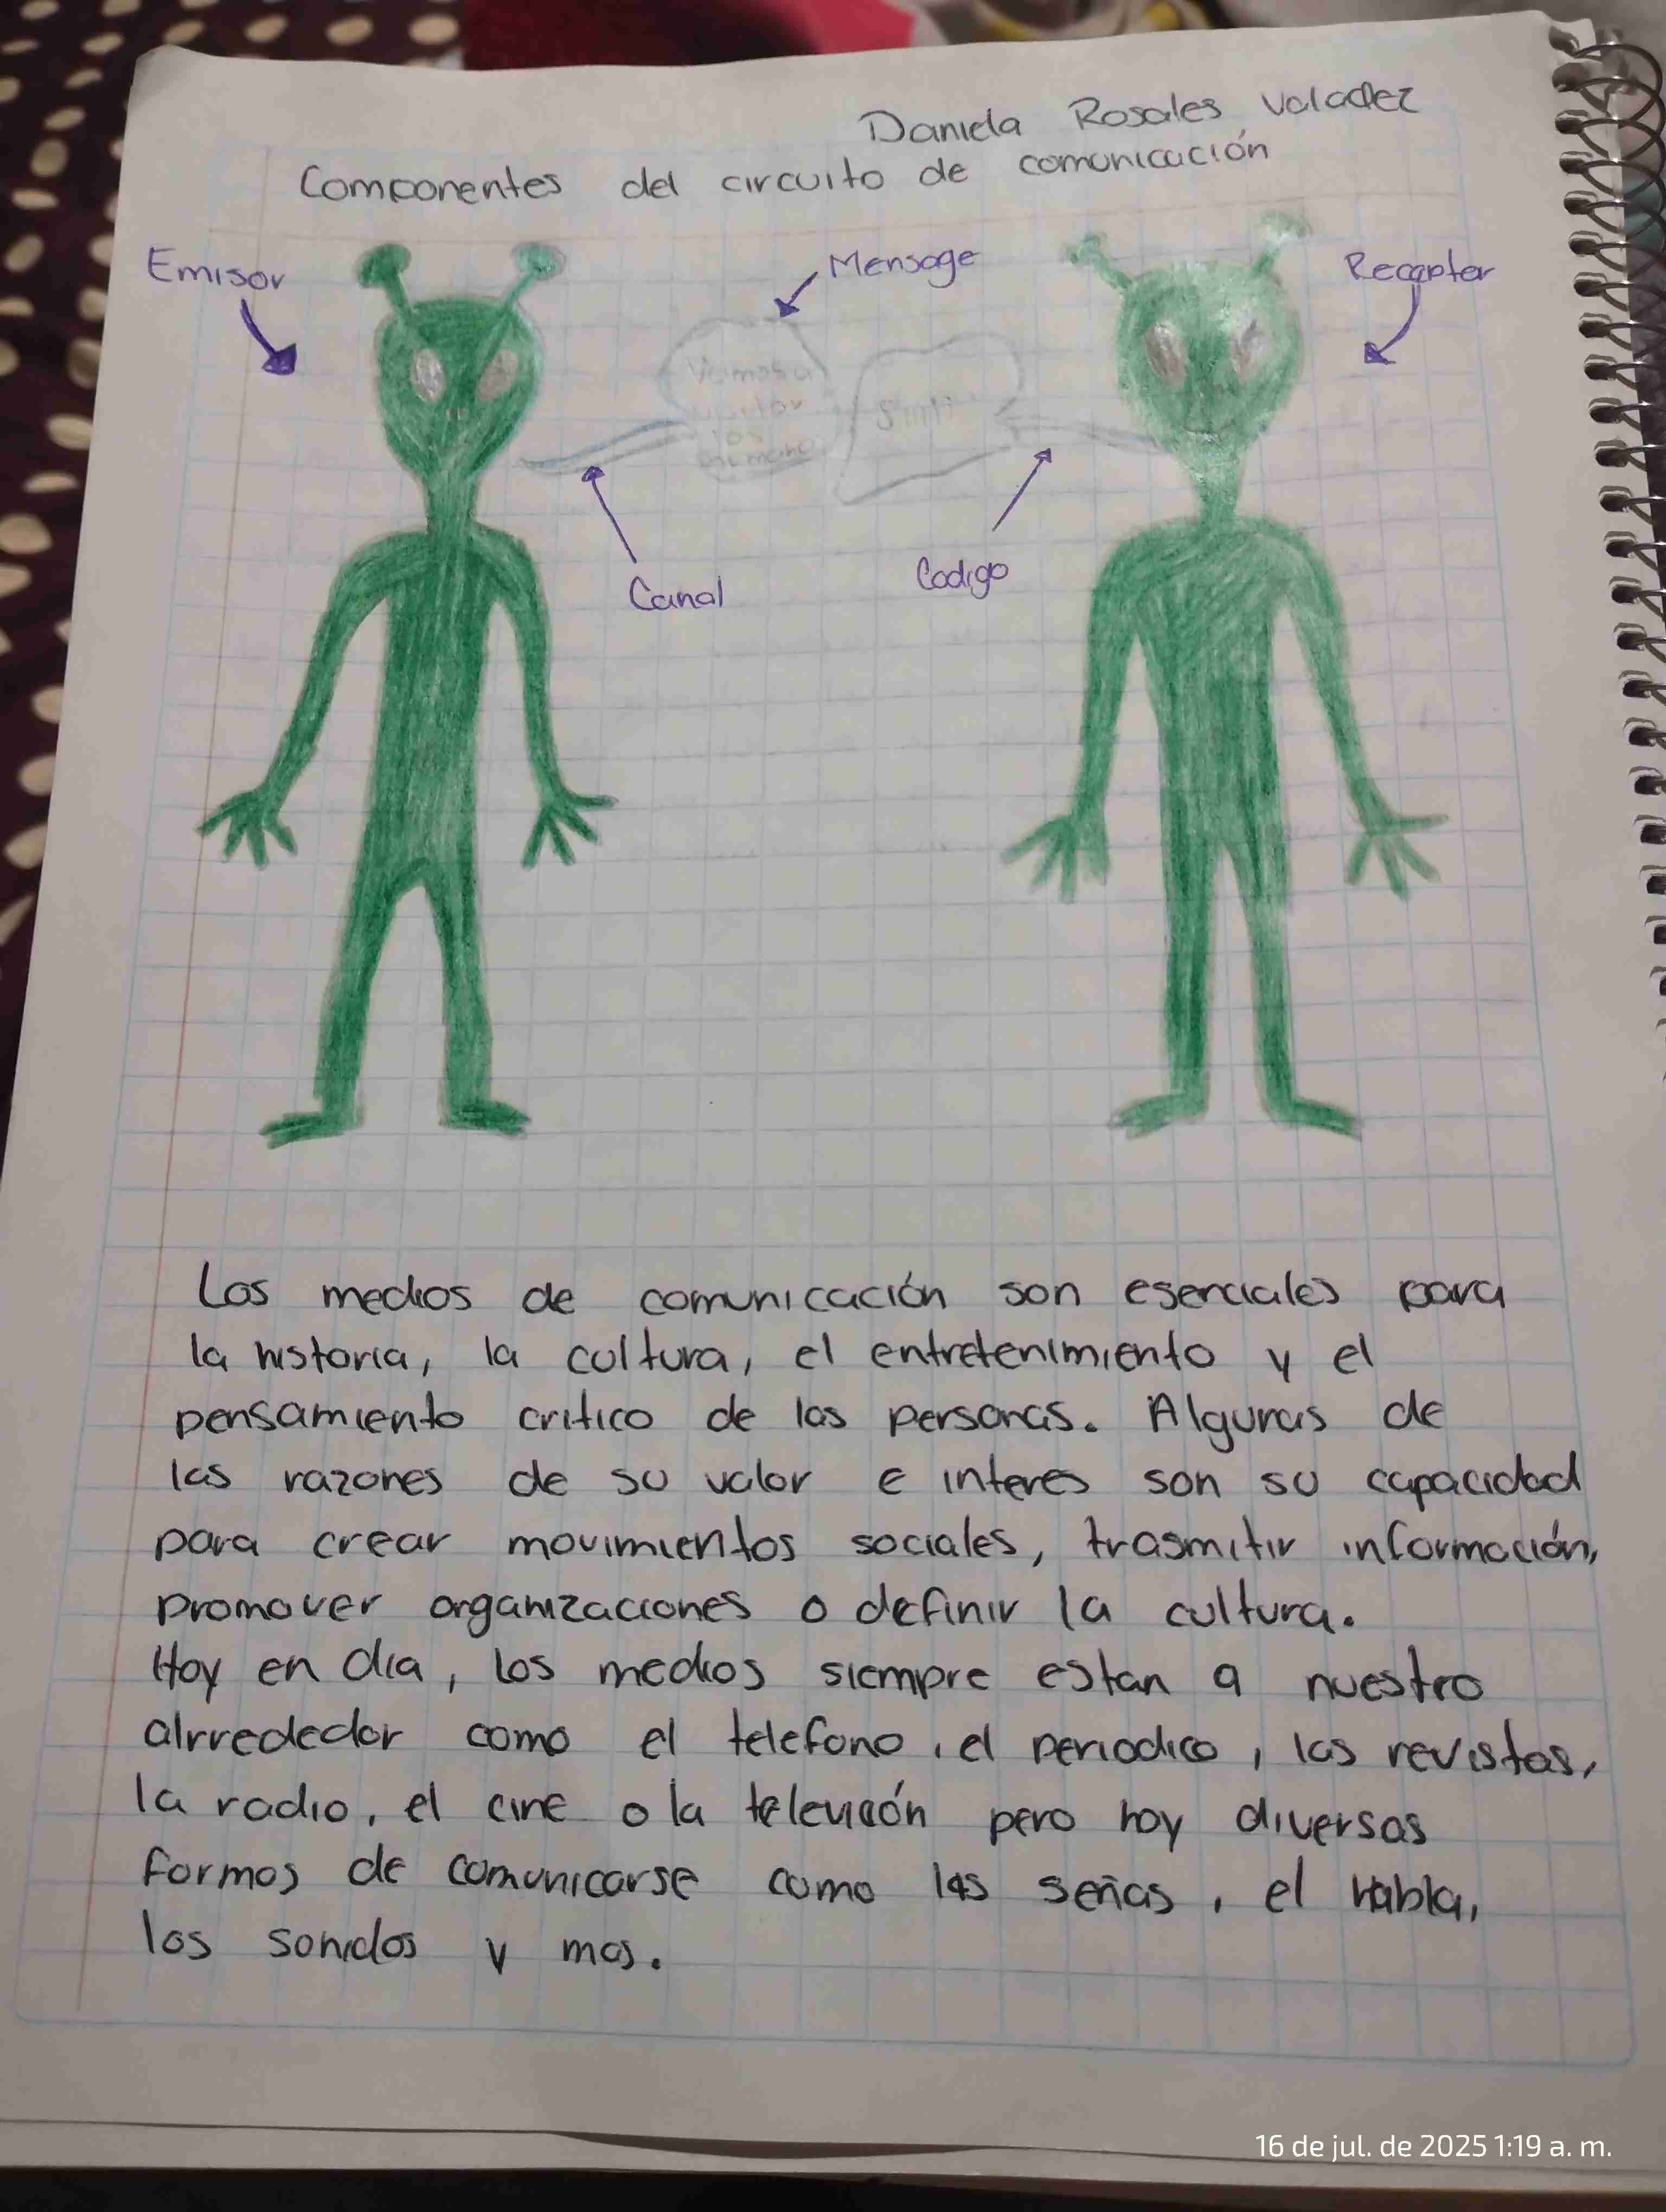 Daniela Rosales Valadez
Componentes del circuito de comunicación
Emisor
Mensage
Recepter
Vamos a
visitar
los
humano
Canal
Codigo
Los medios de comunicación son esenciales para
la historia, la cultura, el entretenimiento y el
pensamiento critico de las personas. Algunas de
las razones de su valor e interes son su capacidad
para crear movimientos sociales, trasmitir información,
promover organizaciones o definir la cultura.
Hoy en dia, los medios siempre estan a nuestro
alrrededor como el telefono, el periodico, las revistas,
la radio, el cine o la televisión pero hoy diversas
formas de comunicarse como las señas, el habla,
los sonidos y mas.
16 de jul. de 2025 1:19 a. m.